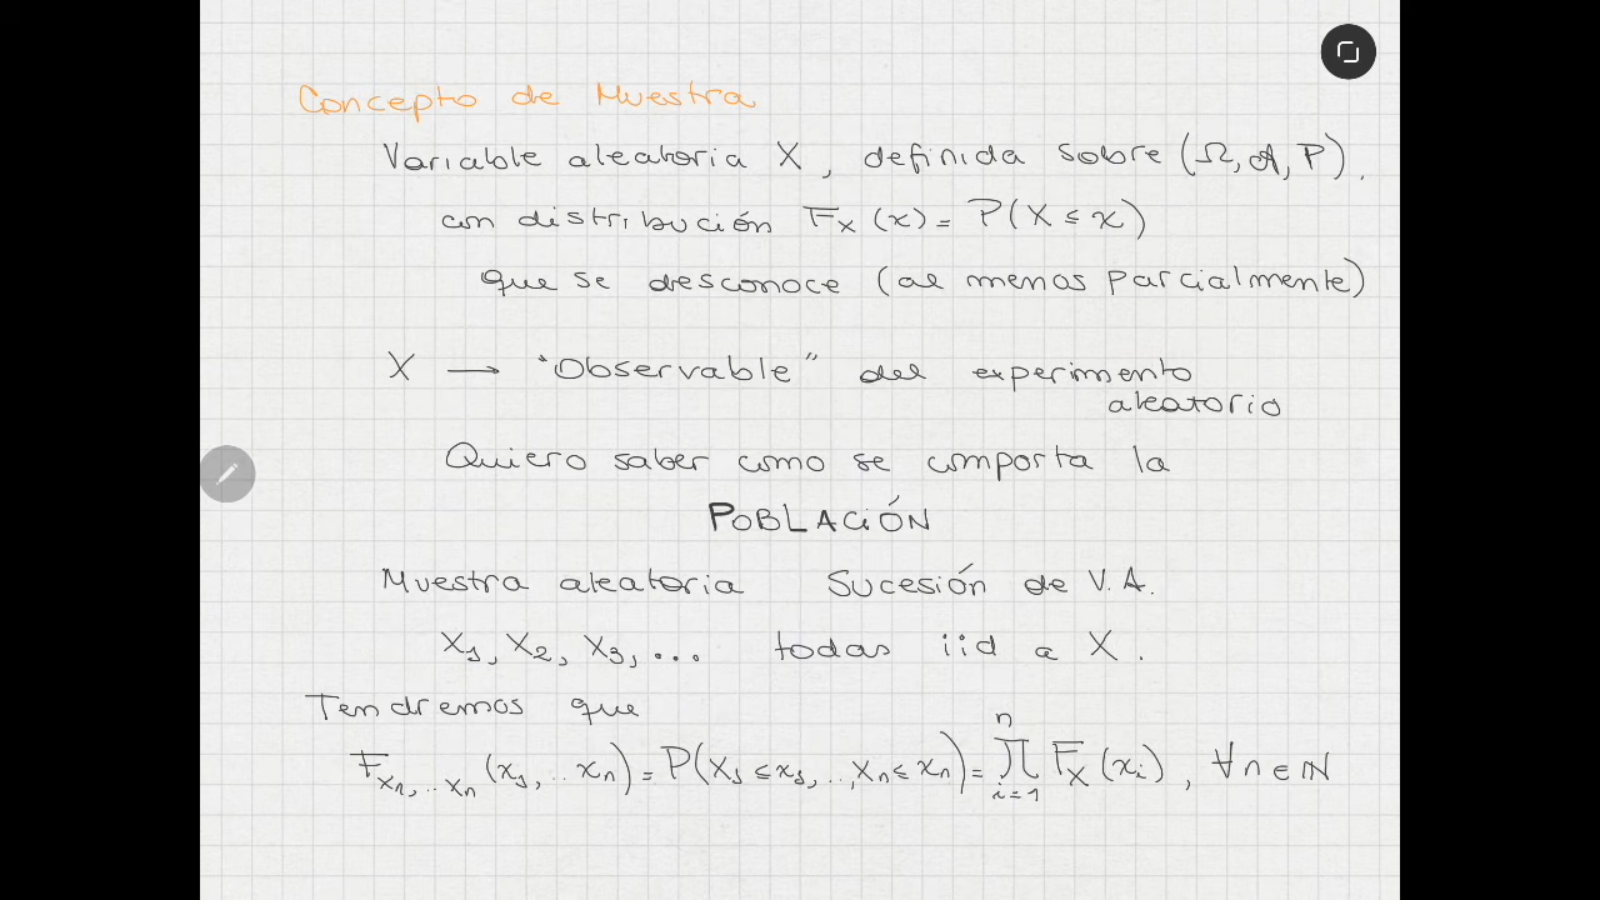 Concepto de Muestra
Variable aleatoria X, definida sobre (Ω, A, P).
con distribución F_X (x) = P(X ≤ x)
que se desconoce (al menos parcialmente)
X → "Observable" del experimento
aleatorio
Quiero saber como se comporta la
POBLACIÓN
Muestra aleatoria Sucesión de V.A.
X_1, X_2, X_3, ... todas iid a X.
Tendremos que
F_{X_1,..X_n} (x_1, ..x_n) = P(X_1 ≤ x_1, .., X_n ≤ x_n) = ∏_{i=1}^{n} F_X (x_i), ∀n ∈ ℕ